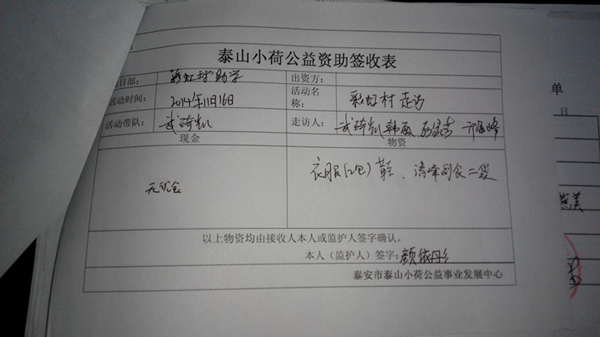 泰山小荷公益资助签收表
目部: 彩虹村助学 出资方:
活动时间: 2014年11月16日 活动名称: 彩虹村走访
活动带队: 武琦凯 走访人: 武琦凯 韩
现金 物资
无现金 衣服(2包) 鞋、
以上物资均由接收人本人或监护人签字确认。
本人(监护人)签字: 颜依彤
泰安市泰山小荷公益事业发展中心
单
日
美